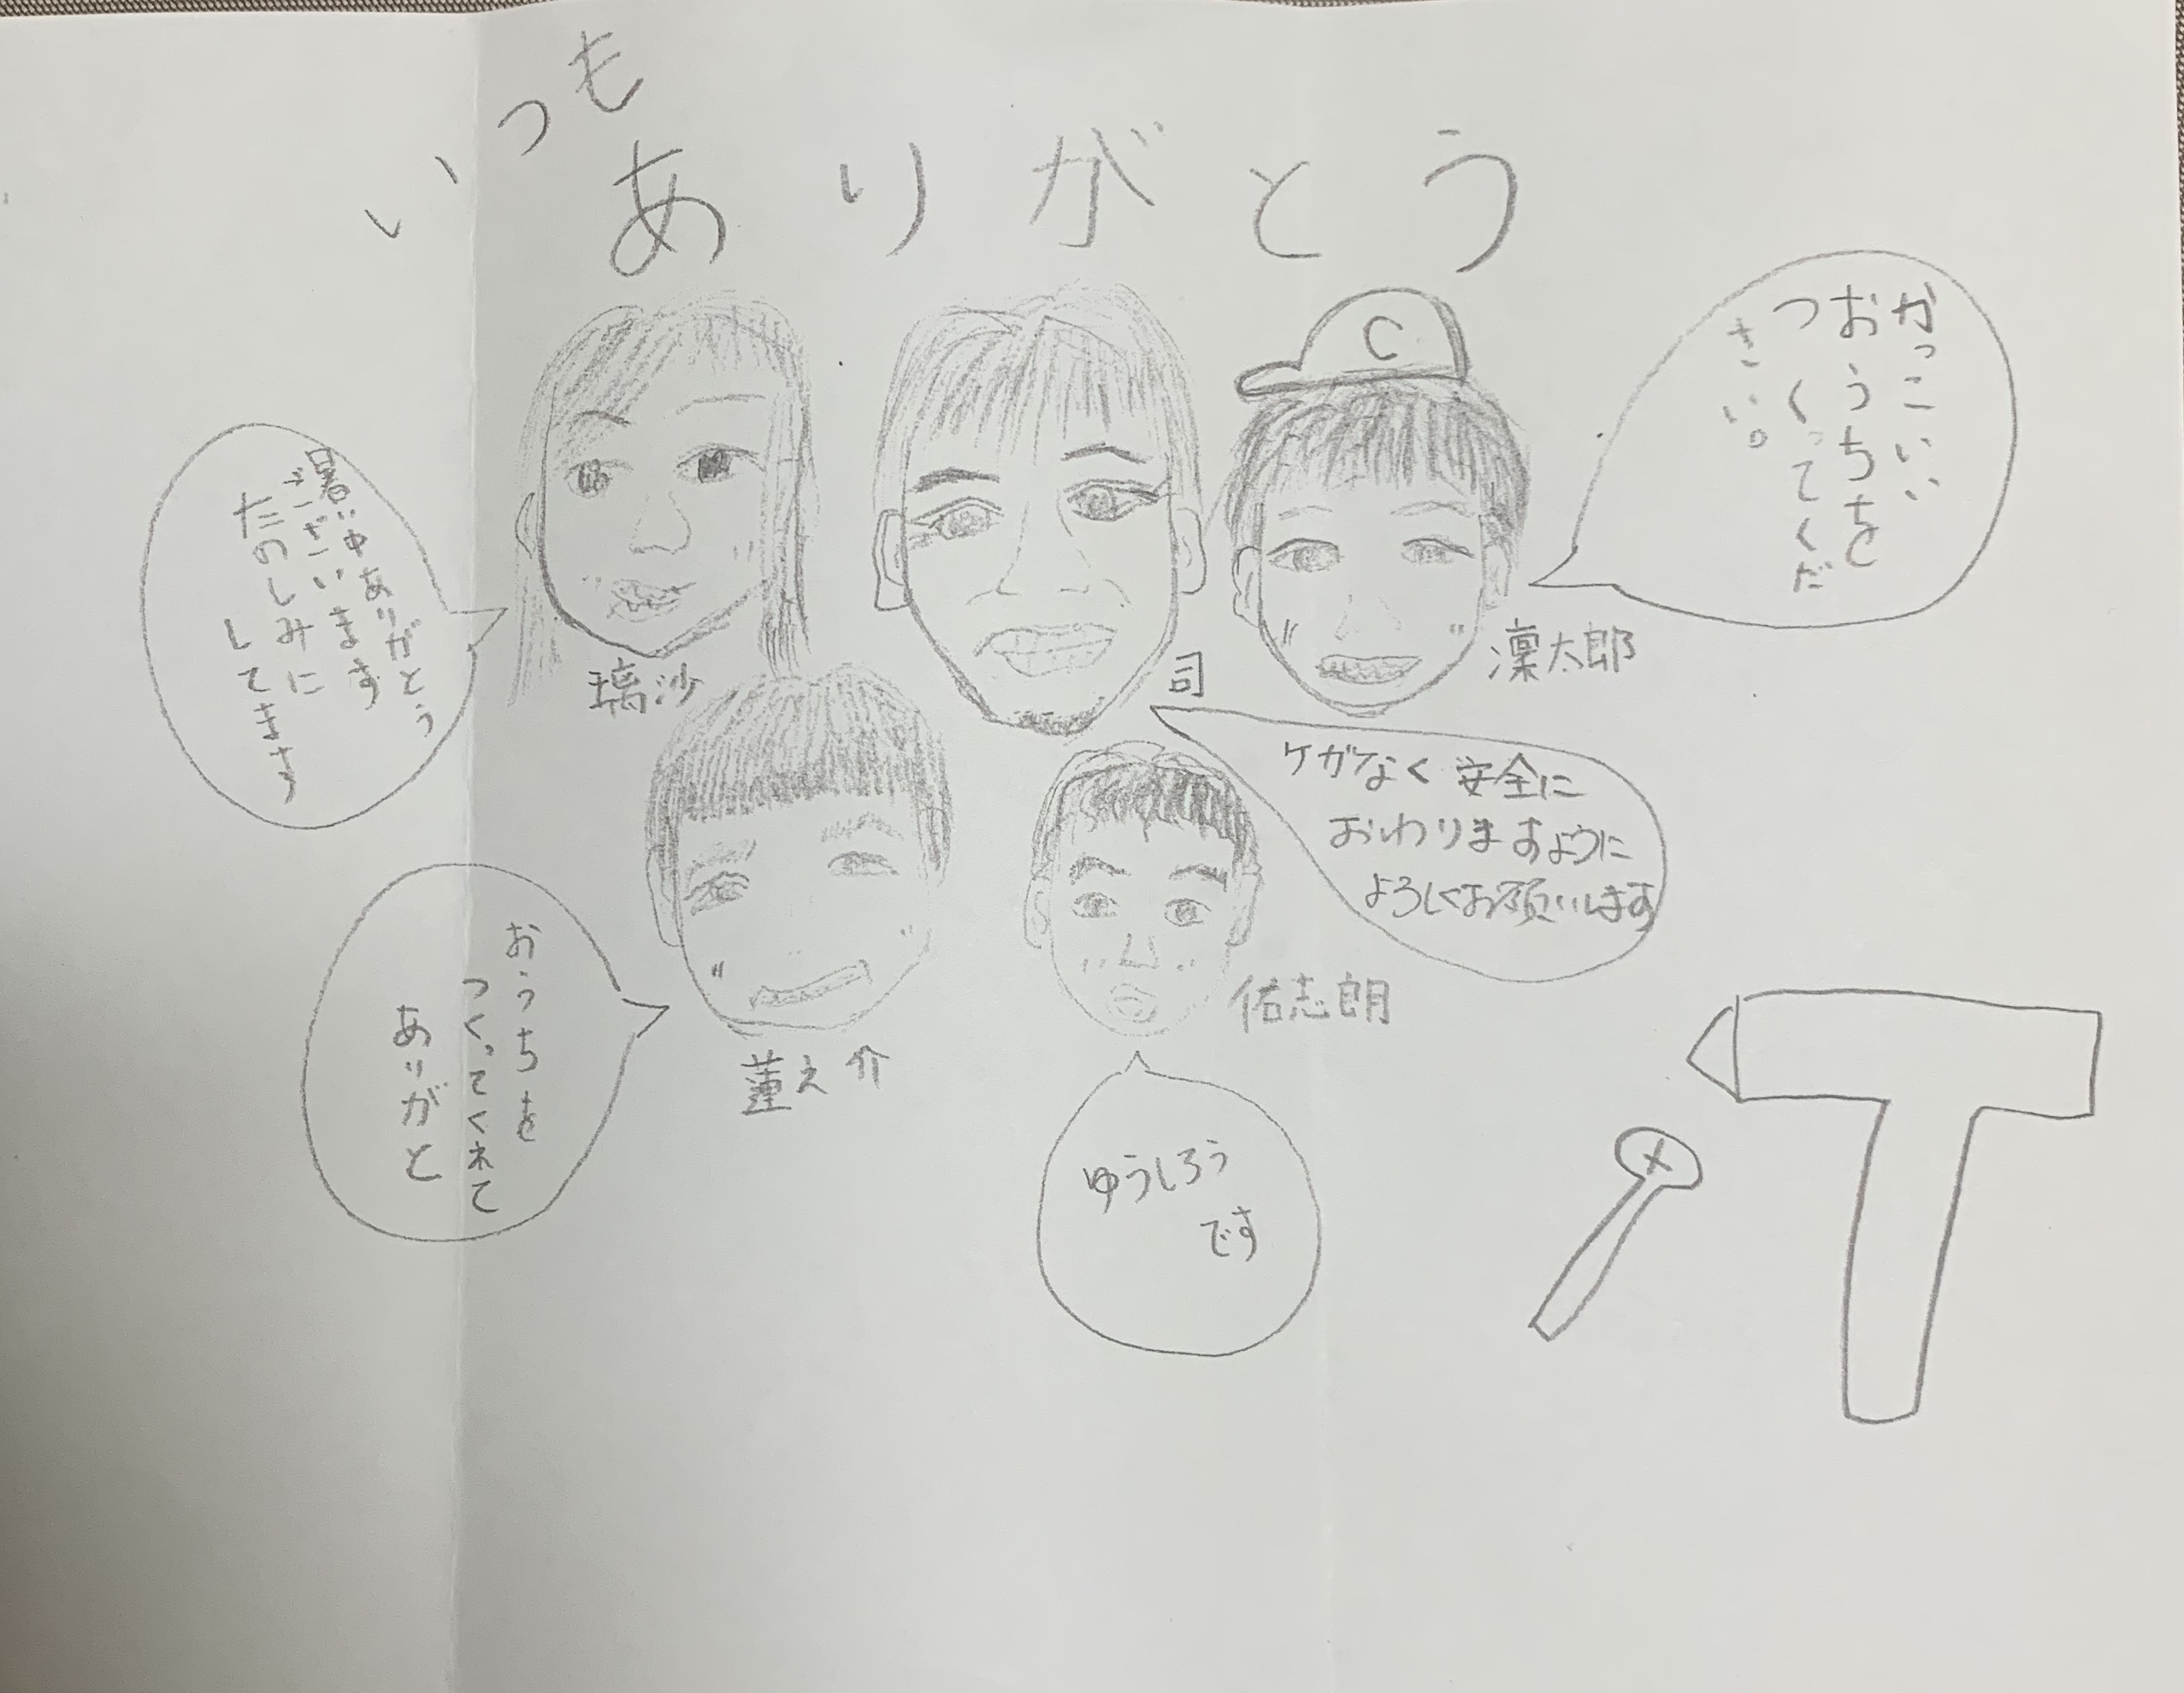 いつも
ありがとう
C
かっこいい
おうちを
つくってくだ
さい。
凜太郎
暑い中ありがとう
ございます
たのしみに
してます
璃沙
司
ケガなく安全に
おわりますように
よろしくお願いします
おうちを
つくってくれて
ありがと
蓮之介
佑志朗
ゆうしろう
です